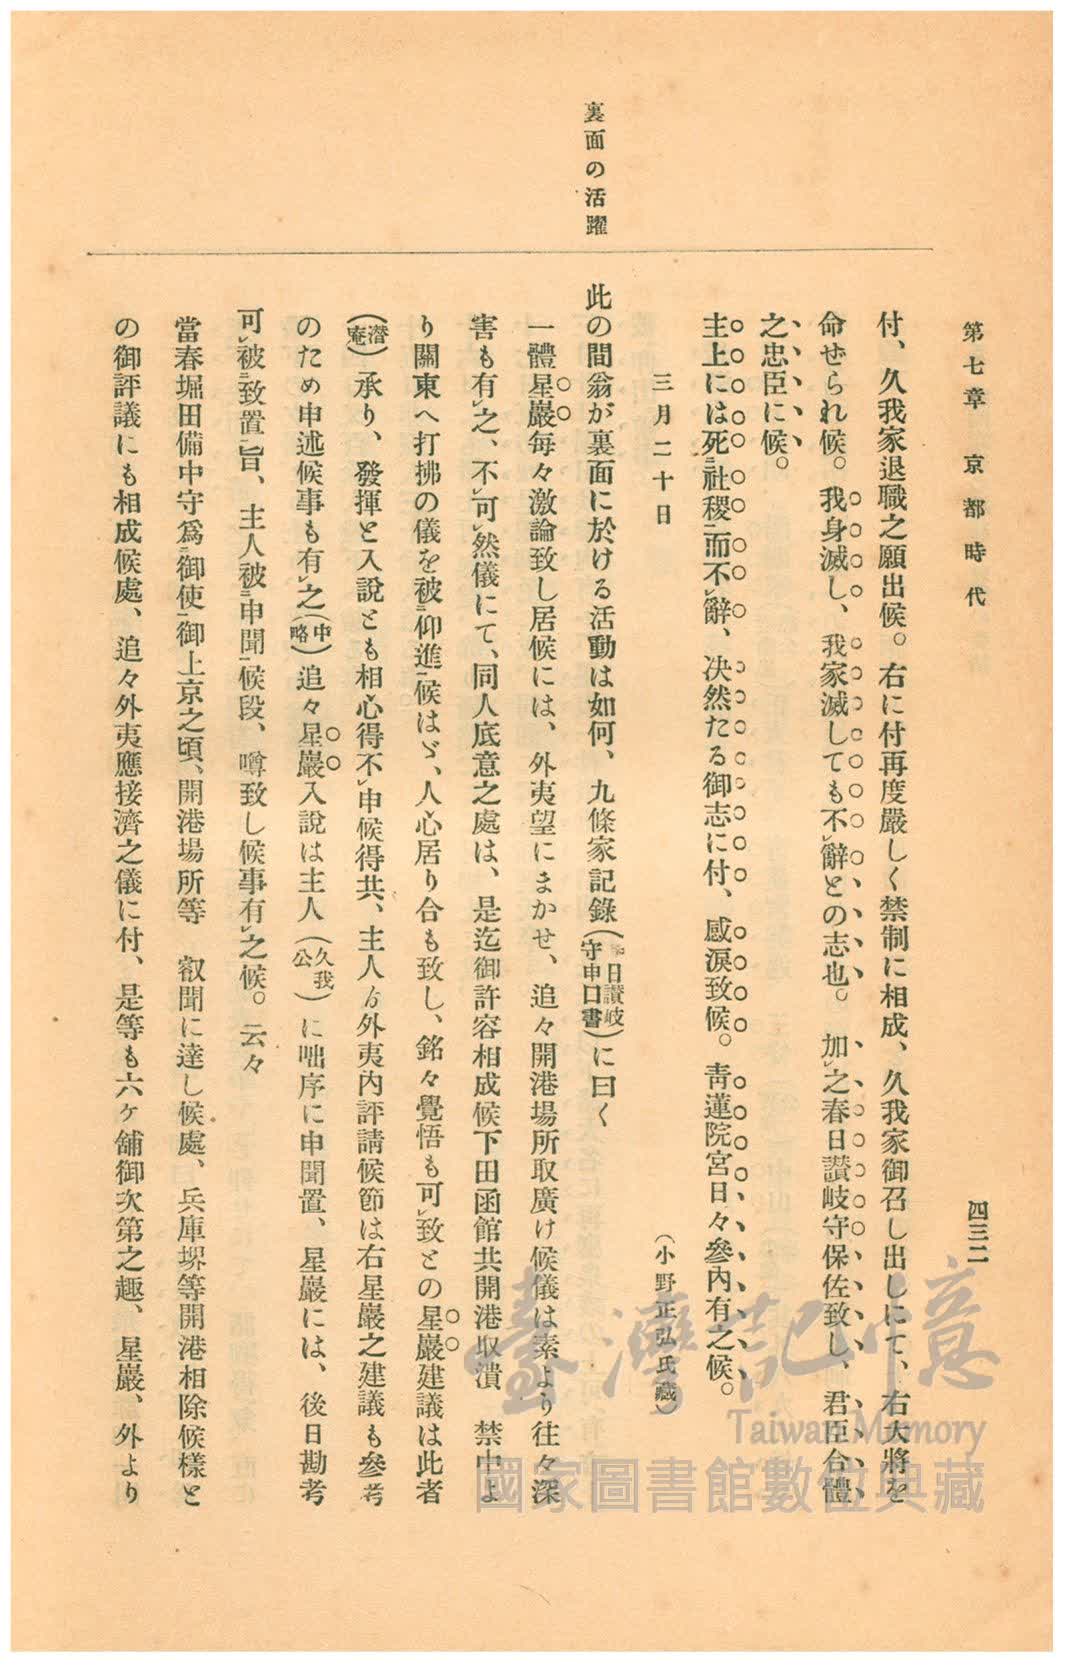 第七章　京都時代
四三二
付、久我家退職之願出候。右に付再度嚴しく禁制に相成、久我家御召し出しにて、右大將を
命ぜられ候。我身滅し、我家滅しても不レ辭との志也。加レ之春日讃岐守保佐致し、君臣合體
之忠臣に候。
主上には死二社稷一而不レ辭、決然たる御志に付、感淚致候。靑蓮院宮日々參內有之候。
三月二十日
（小野正弘氏藏）
裏面の活躍
此の間翁が裏面に於ける活動は如何、九條家記錄（日讃岐守申口書）に曰く
一體星巖每々激論致し居候には、外夷望にまかせ、追々開港場所取廣け候儀は素より往々深
害も有レ之、不レ可レ然儀にて、同人底意之處は、是迄御許容相成候下田函館共開港取潰　禁中よ
り關東へ打拂の儀を被二仰進一候はゞ、人心居り合も致し、銘々覺悟も可レ致との星巖建議は此者
（潛庵）承り、發揮と入說とも相心得不レ申候得共、主人ゟ外夷內評請候節は右星巖之建議も參考
のため申述候事も有レ之（中略）追々星巖入說は主人（久我公）に咄序に申聞置、星巖には、後日勘考
可レ被二致置一旨、主人被二申聞一候段、噂致し候事有レ之候。云々
當春堀田備中守爲二御使一御上京之頃、開港場所等　叡聞に達し候處、兵庫堺等開港相除候樣と
の御評議にも相成候處、追々外夷應接濟之儀に付、是等も六ケ舗御次第之趣、星巖、外より
臺灣記憶
Taiwan Memory
國家圖書館數位典藏